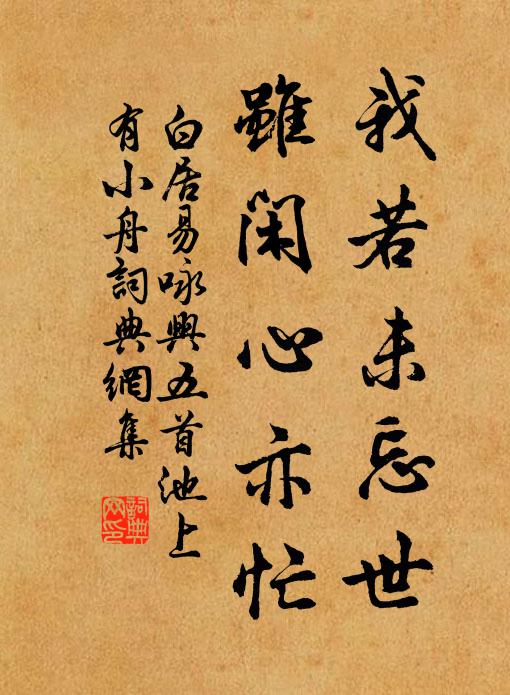 我若未忘世
雖閑心亦忙
白居易咏興五首池上
有小舟詞典網集
詞典
网印